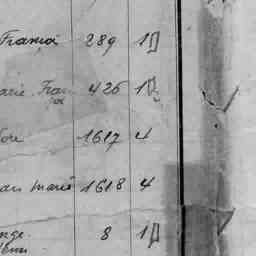 França 289 1
arie Fran 426 1
çoi
1617 4
an Marie 1618 4
nge 8 1